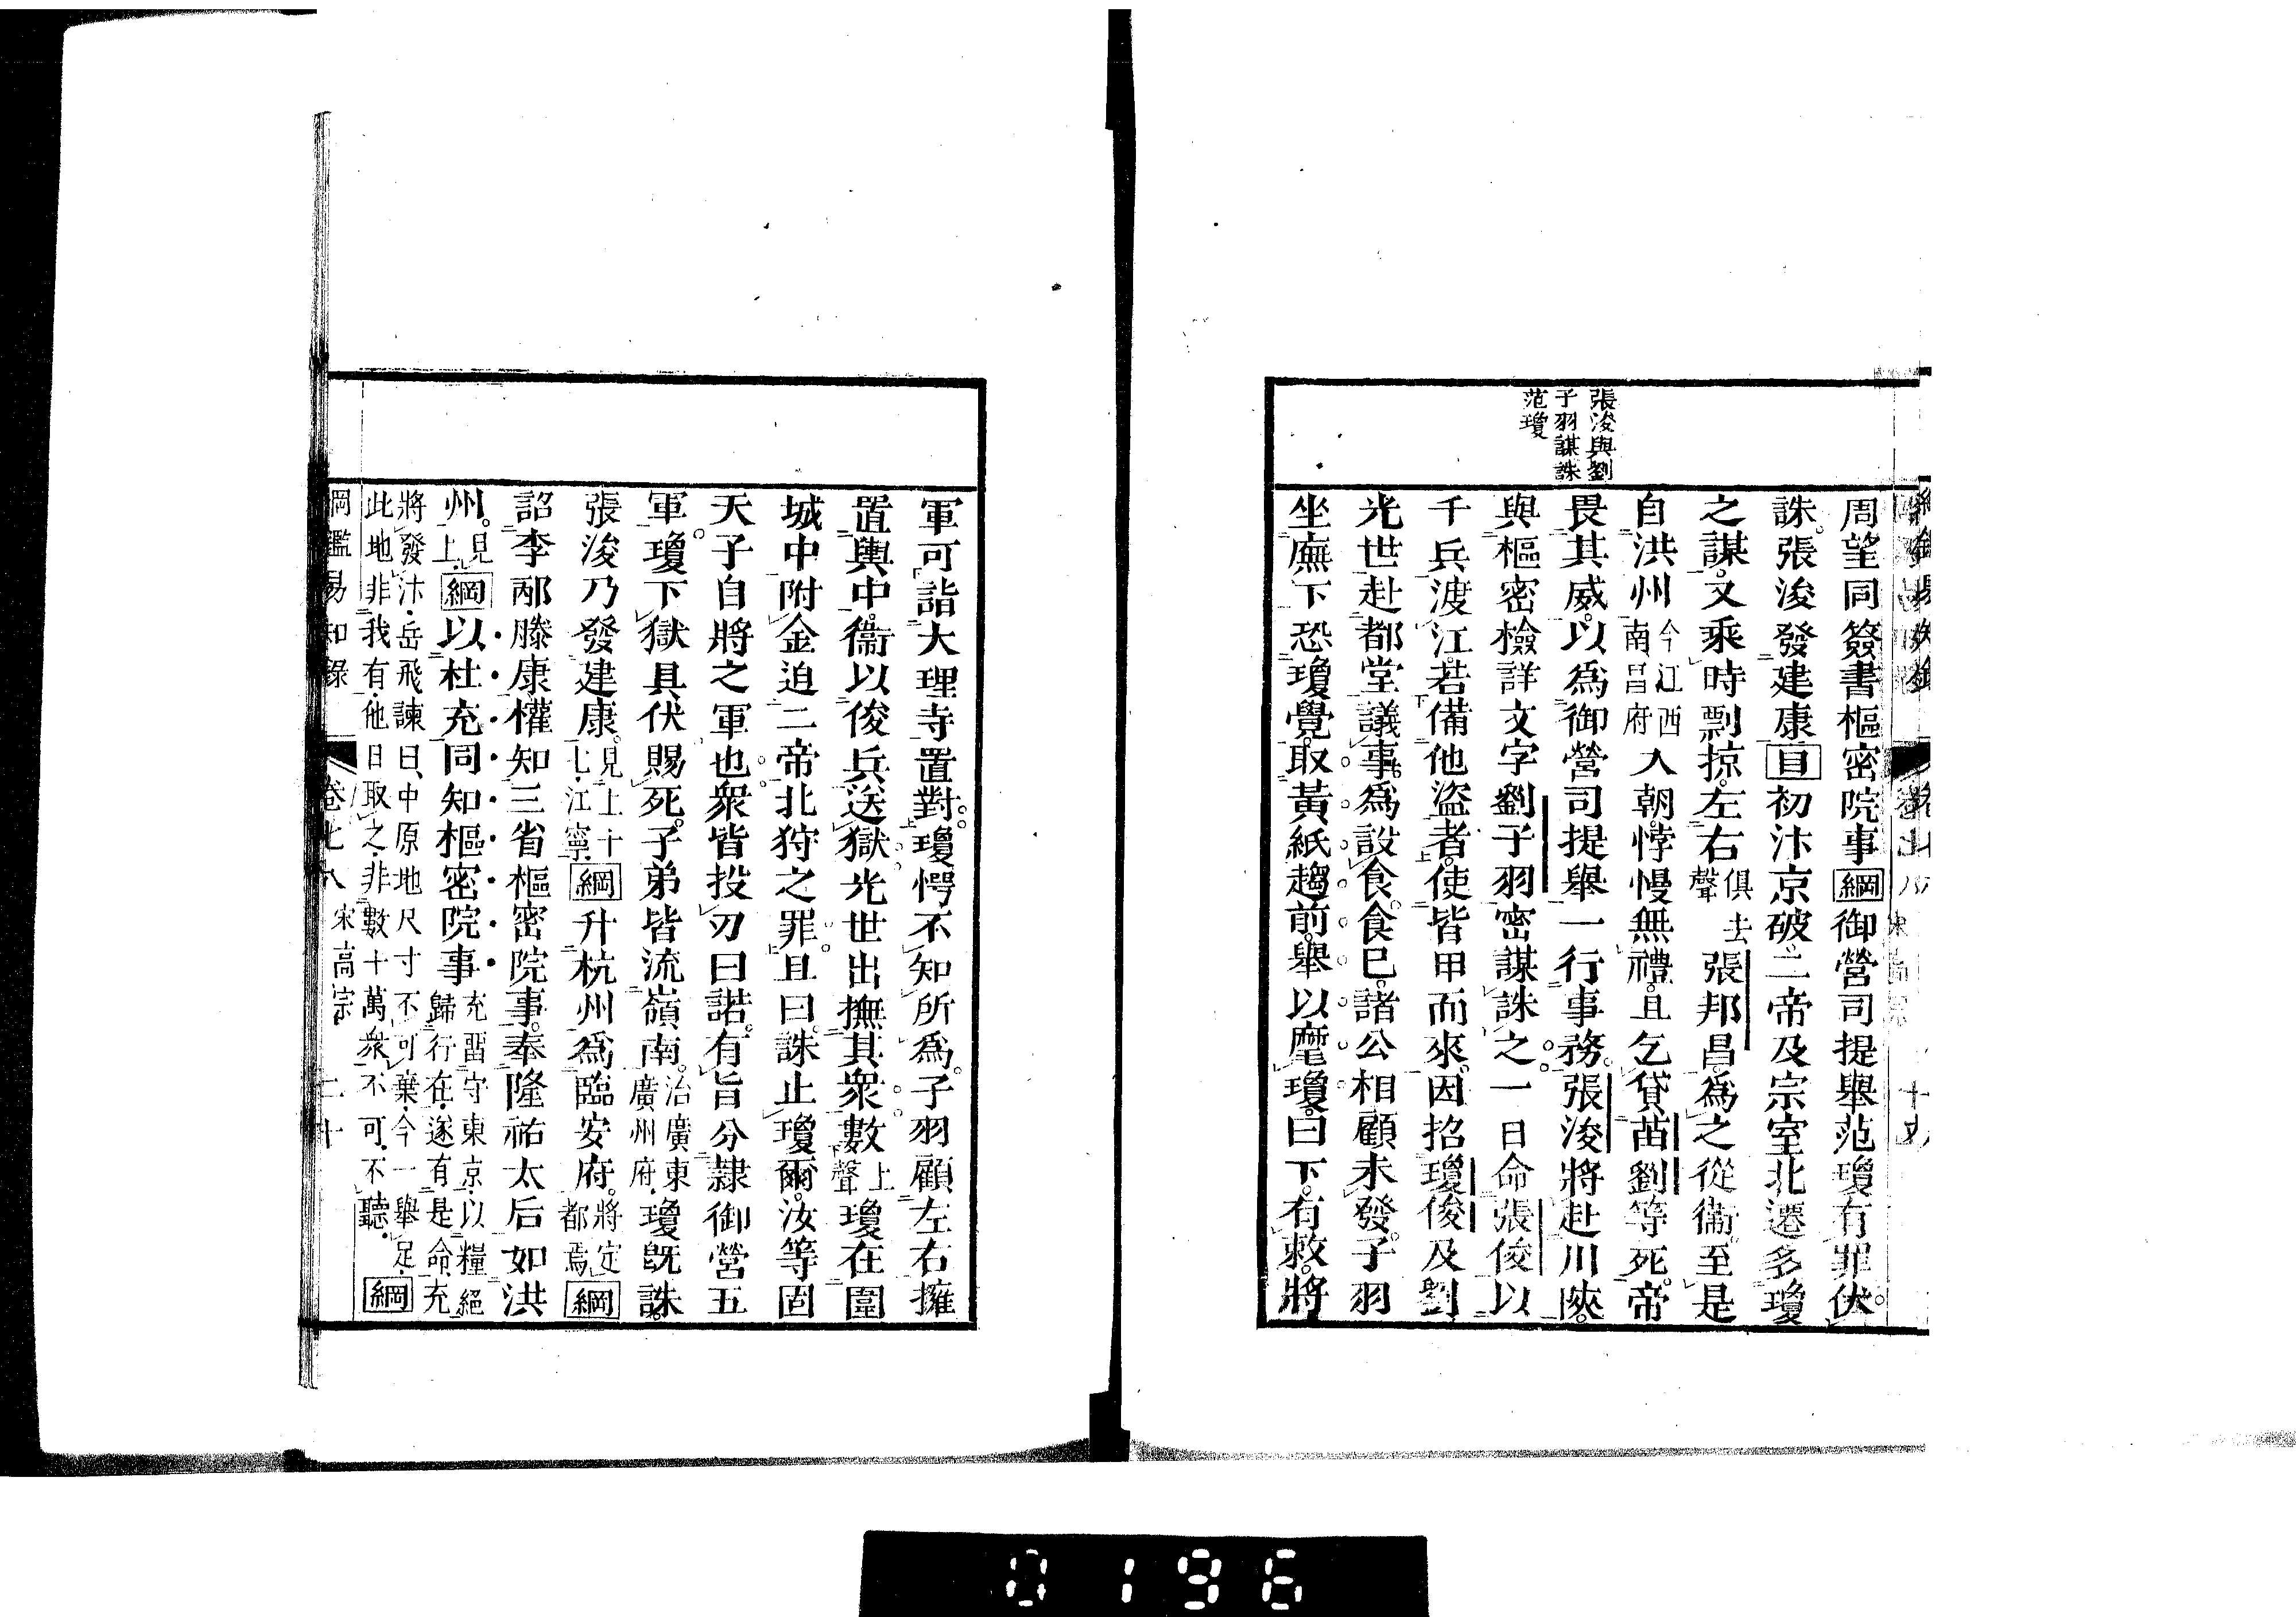 張浚與劉
子羽謀誅
范瓊
周望同簽書樞密院事綱御營司提舉范瓊有罪伏
誅張浚發建康目初汴京破二帝及宗室北遷多瓊
之謀又乘時剽掠左右俱去聲張邦昌爲之從衞至是
自洪州今江西南昌府入朝悖慢無禮且乞貸苗劉等死帝
畏其威以爲御營司提舉一行事務張浚將赴川陝
與樞密檢詳文字劉子羽密謀誅之一日命張俊以
千兵渡江若備他盜者使皆甲而來因招瓊俊及劉
光世赴都堂議事爲設食食已諸公相顧未發子羽
坐廡下恐瓊覺取黃紙趨前舉以麾瓊曰下有敕將
軍可詣大理寺置對瓊愕不知所爲子羽顧左右擁
置輿中衞以俊兵送獄光世出撫其衆數上聲瓊在圍
城中附金迫二帝北狩之罪且曰誅止瓊爾汝等固
天子自將之軍也衆皆投刃曰諾有旨分隸御營五
軍瓊下獄具伏賜死子弟皆流嶺南治廣東廣州府瓊旣誅
張浚乃發建康見上十七江寧綱升杭州爲臨安府將定都焉綱
詔李邴滕康權知三省樞密院事奉隆祐太后如洪
州見上綱以杜充同知樞密院事充畱守東京以糧絕歸行在遂有是命充
將發汴岳飛諫曰中原地尺寸不可棄今一舉足
此地非我有他日取之非數十萬衆不可不聽綱
綱鑑易知錄 卷七八 宋高宗 二十
0196